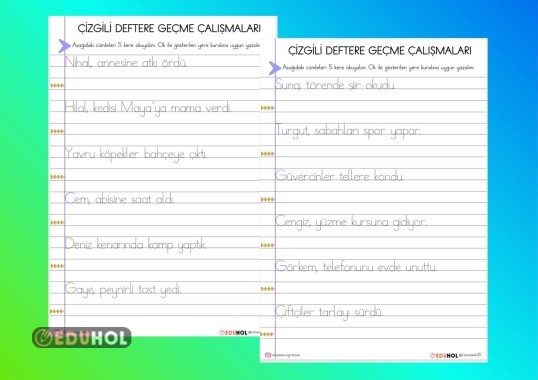 ÇİZGİLİ DEFTERE GEÇME ÇALIŞMALARI
Aşağıdaki cümleleri 5 kere okuyalım. Ok ile gösterilen yere kuralına uygun yazalım.
Nihal, annesine atkı ördü.
Hilal, kedisi Maya'ya mama verdi.
Yavru köpekler bahçeye çıktı.
Cem, abisine saat aldı.
Deniz kenarında kamp yaptık.
Gaye, peynirli tost yedi.
EDUHOL
EDUHOL
ÇİZGİLİ DEFTERE GEÇME ÇALIŞMALARI
Aşağıdaki cümleleri 5 kere okuyalım. Ok ile gösterilen yere kuralına uygun yazalım.
Suna, törende şiir okudu.
Turgut, sabahları spor yapar.
Güvercinler tellere kondu.
Cengiz, yüzme kursuna gidiyor.
Görkem, telefonunu evde unuttu.
Çiftçiler tarlayı sürdü.
EDUHOL